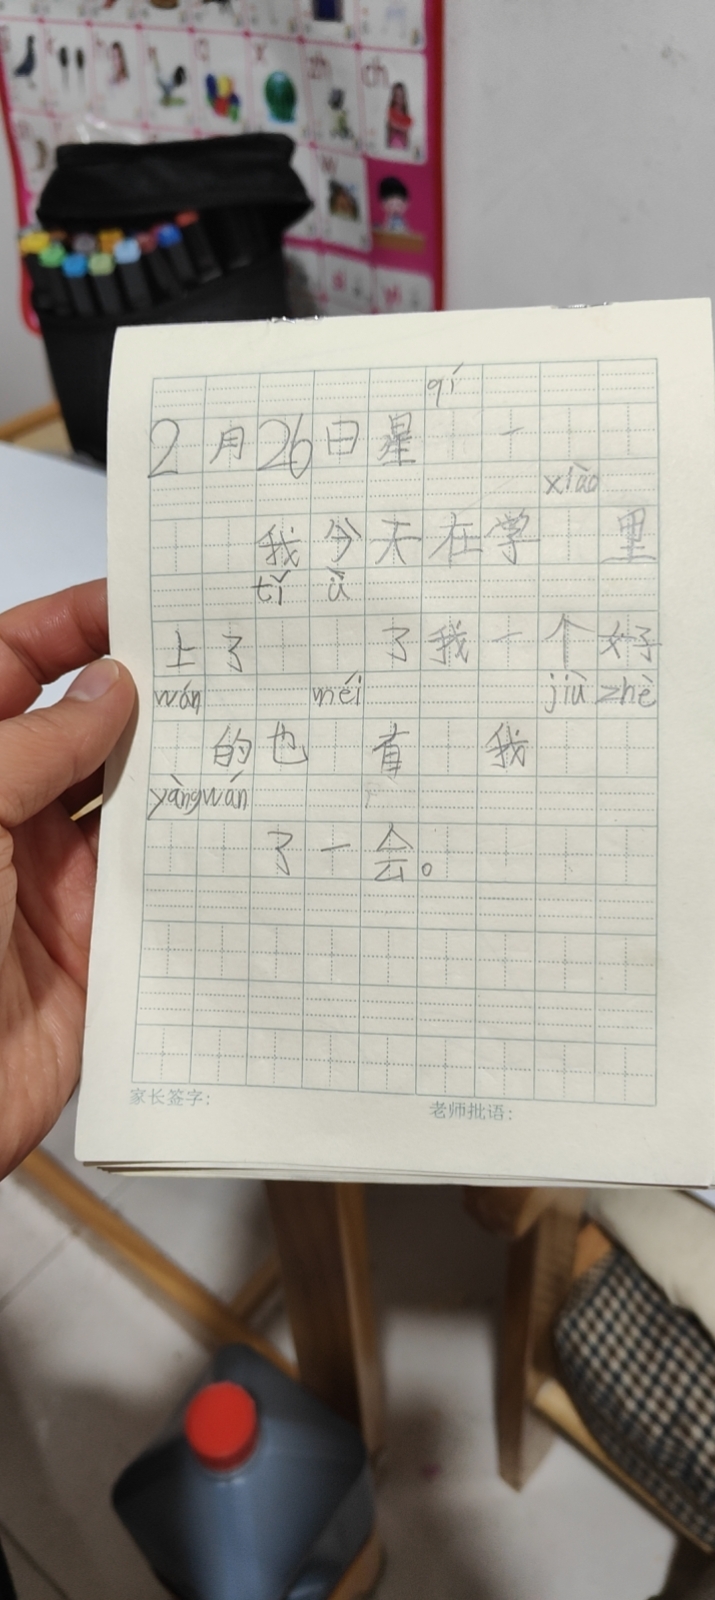 qí
2月26日星 一
xiào
我今天在学 里
tǐ ǜ
上了 了我一个好
wán méi jiù zhè
的也 有 我
yàng wán
了一会。
家长签字： 老师批语：
zh
ch